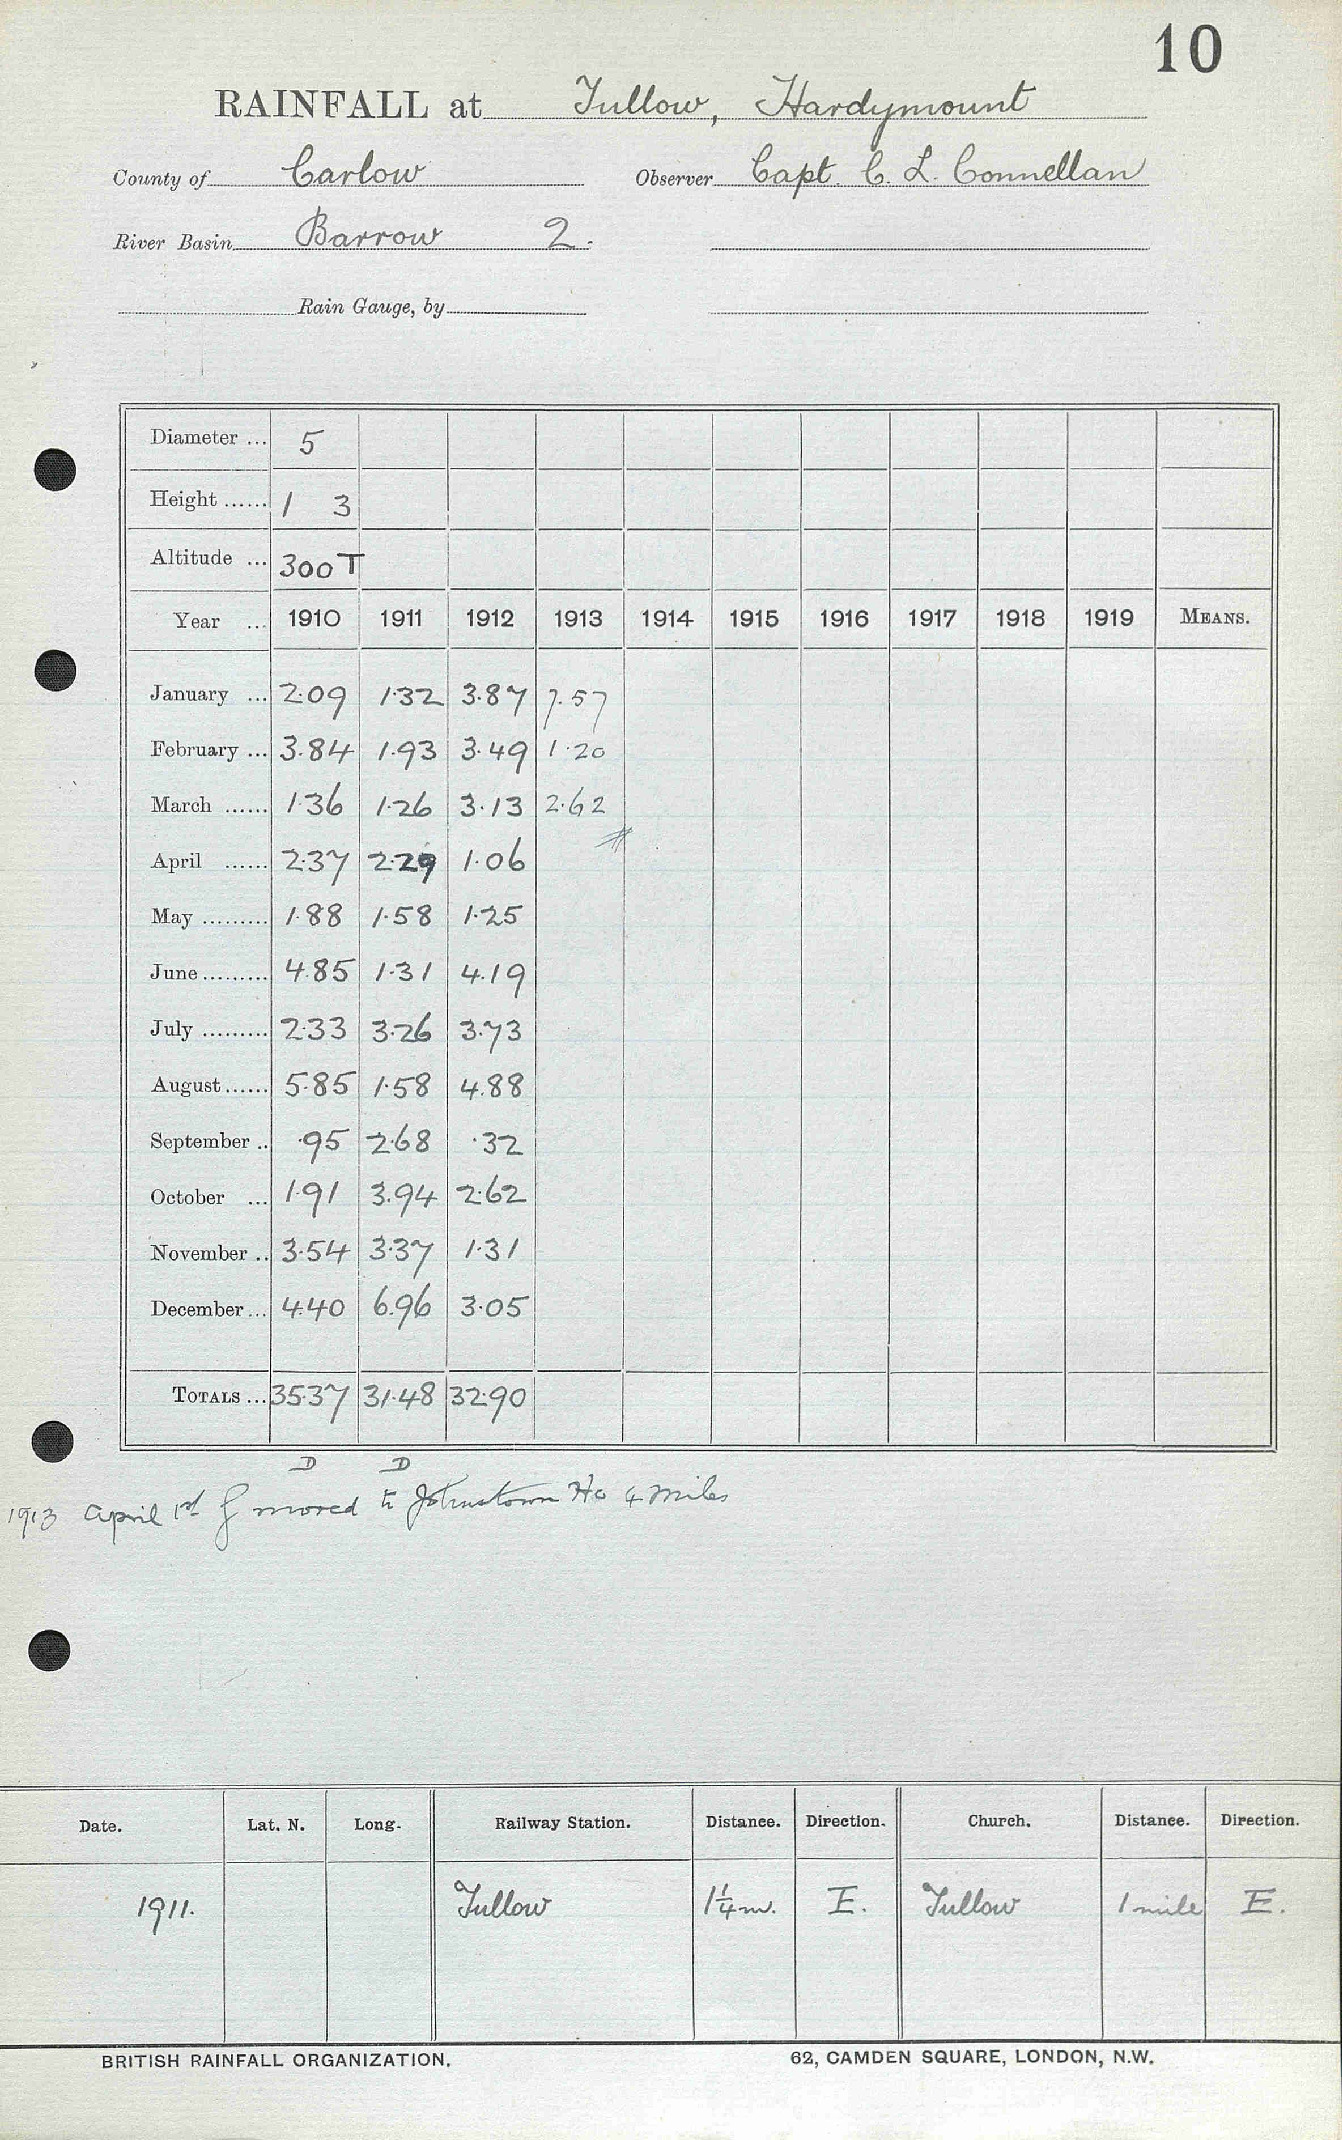 10
RAINFALL at Tullow, Hardymount
County of Carlow Observer Capt. C. L. Connellan
River Basin Barrow 2.
Rain Gauge, by
Diameter ... 5
Height ...... 1 3
Altitude ... 300 T
Year ... 1910 1911 1912 1913 1914 1915 1916 1917 1918 1919 MEANS.
January ... 2.09 1.32 3.87 7.57
February ... 3.84 1.93 3.49 1.20
March ...... 1.36 1.26 3.13 2.62
April ...... 2.37 2.29 1.06
May ......... 1.88 1.58 1.25
June ......... 4.85 1.31 4.19
July ......... 2.33 3.26 3.73
August ...... 5.85 1.58 4.88
September .. .95 2.68 .32
October ... 1.91 3.94 2.62
November .. 3.54 3.37 1.31
December ... 4.40 6.96 3.05
TOTALS ... 35.37 31.48 32.90
D D
1913 April 1st g moved to Johnstown Ho 4 miles
Date. Lat. N. Long. Railway Station. Distance. Direction. Church. Distance. Direction.
1911. Tullow 1¼ m. E. Tullow 1 mile E.
BRITISH RAINFALL ORGANIZATION. 62, CAMDEN SQUARE, LONDON, N.W.